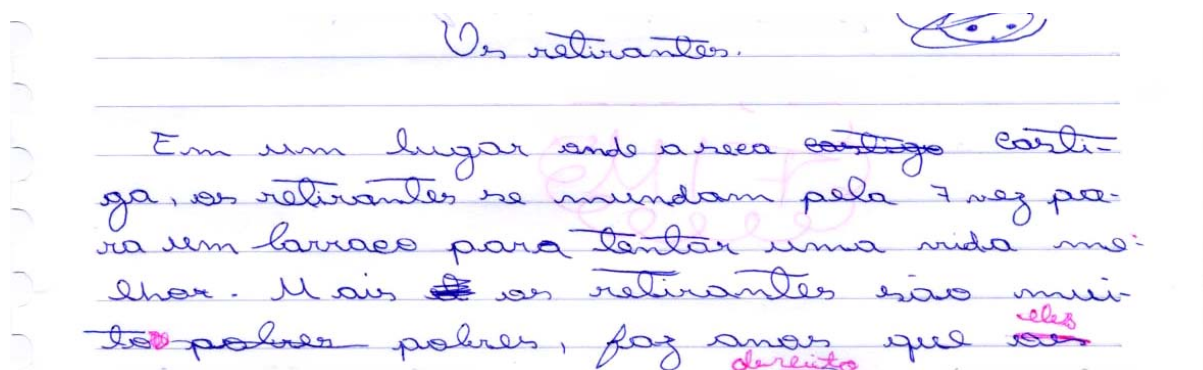 Os retirantes.
Em um lugar onde a seca castigo casti-
ga, os retirantes se mundam pela 7 vez pa-
ra um barraco para tentar uma vida me-
lhor. Mais os retirantes são mui-
to pobres pobres, faz anos que os eles
dereito